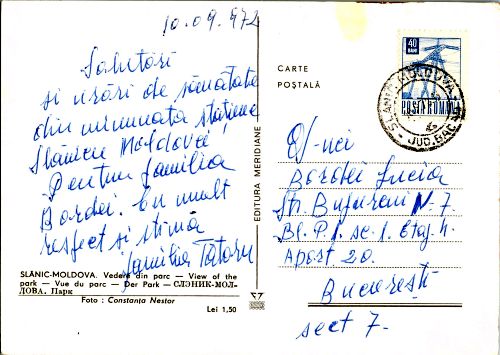 10.09.972
Salutări
și urări de sănătate
din minunata stațiune
Slănicu Moldovei,
Pentru familia
Bordei. Cu mult
respect și stimă
familia Tătoru
SLĂNIC-MOLDOVA. Vedere din parc — View of the
park — Vue du parc — Der Park — СЛЭНИК-МОЛ-
ДОВА. Парк
Foto : Constanța Nestor
Lei 1,50
EDITURA MERIDIANE
CARTE
POȘTALĂ
40
BANI
POSTA ROMANA
SLANIC MOLDOVA
JUD. BACAU
Of-nei
Lucia
Str. N-7.
Bl. P.1 sc. 1. Etaj 4.
Apost 20.
București
sect 7-